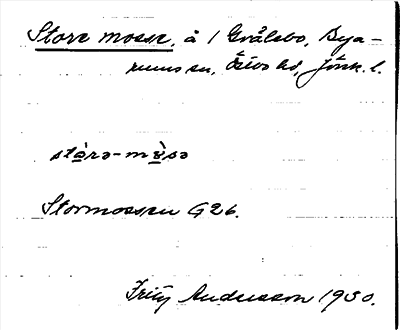 Store mosse, å 1 Gvålebo, Bya-
rums sn, Östbo hd, Jönk. l.
stò̤rə-mò̤sə
Stormossen G26.
Fritz Andersson 1930.